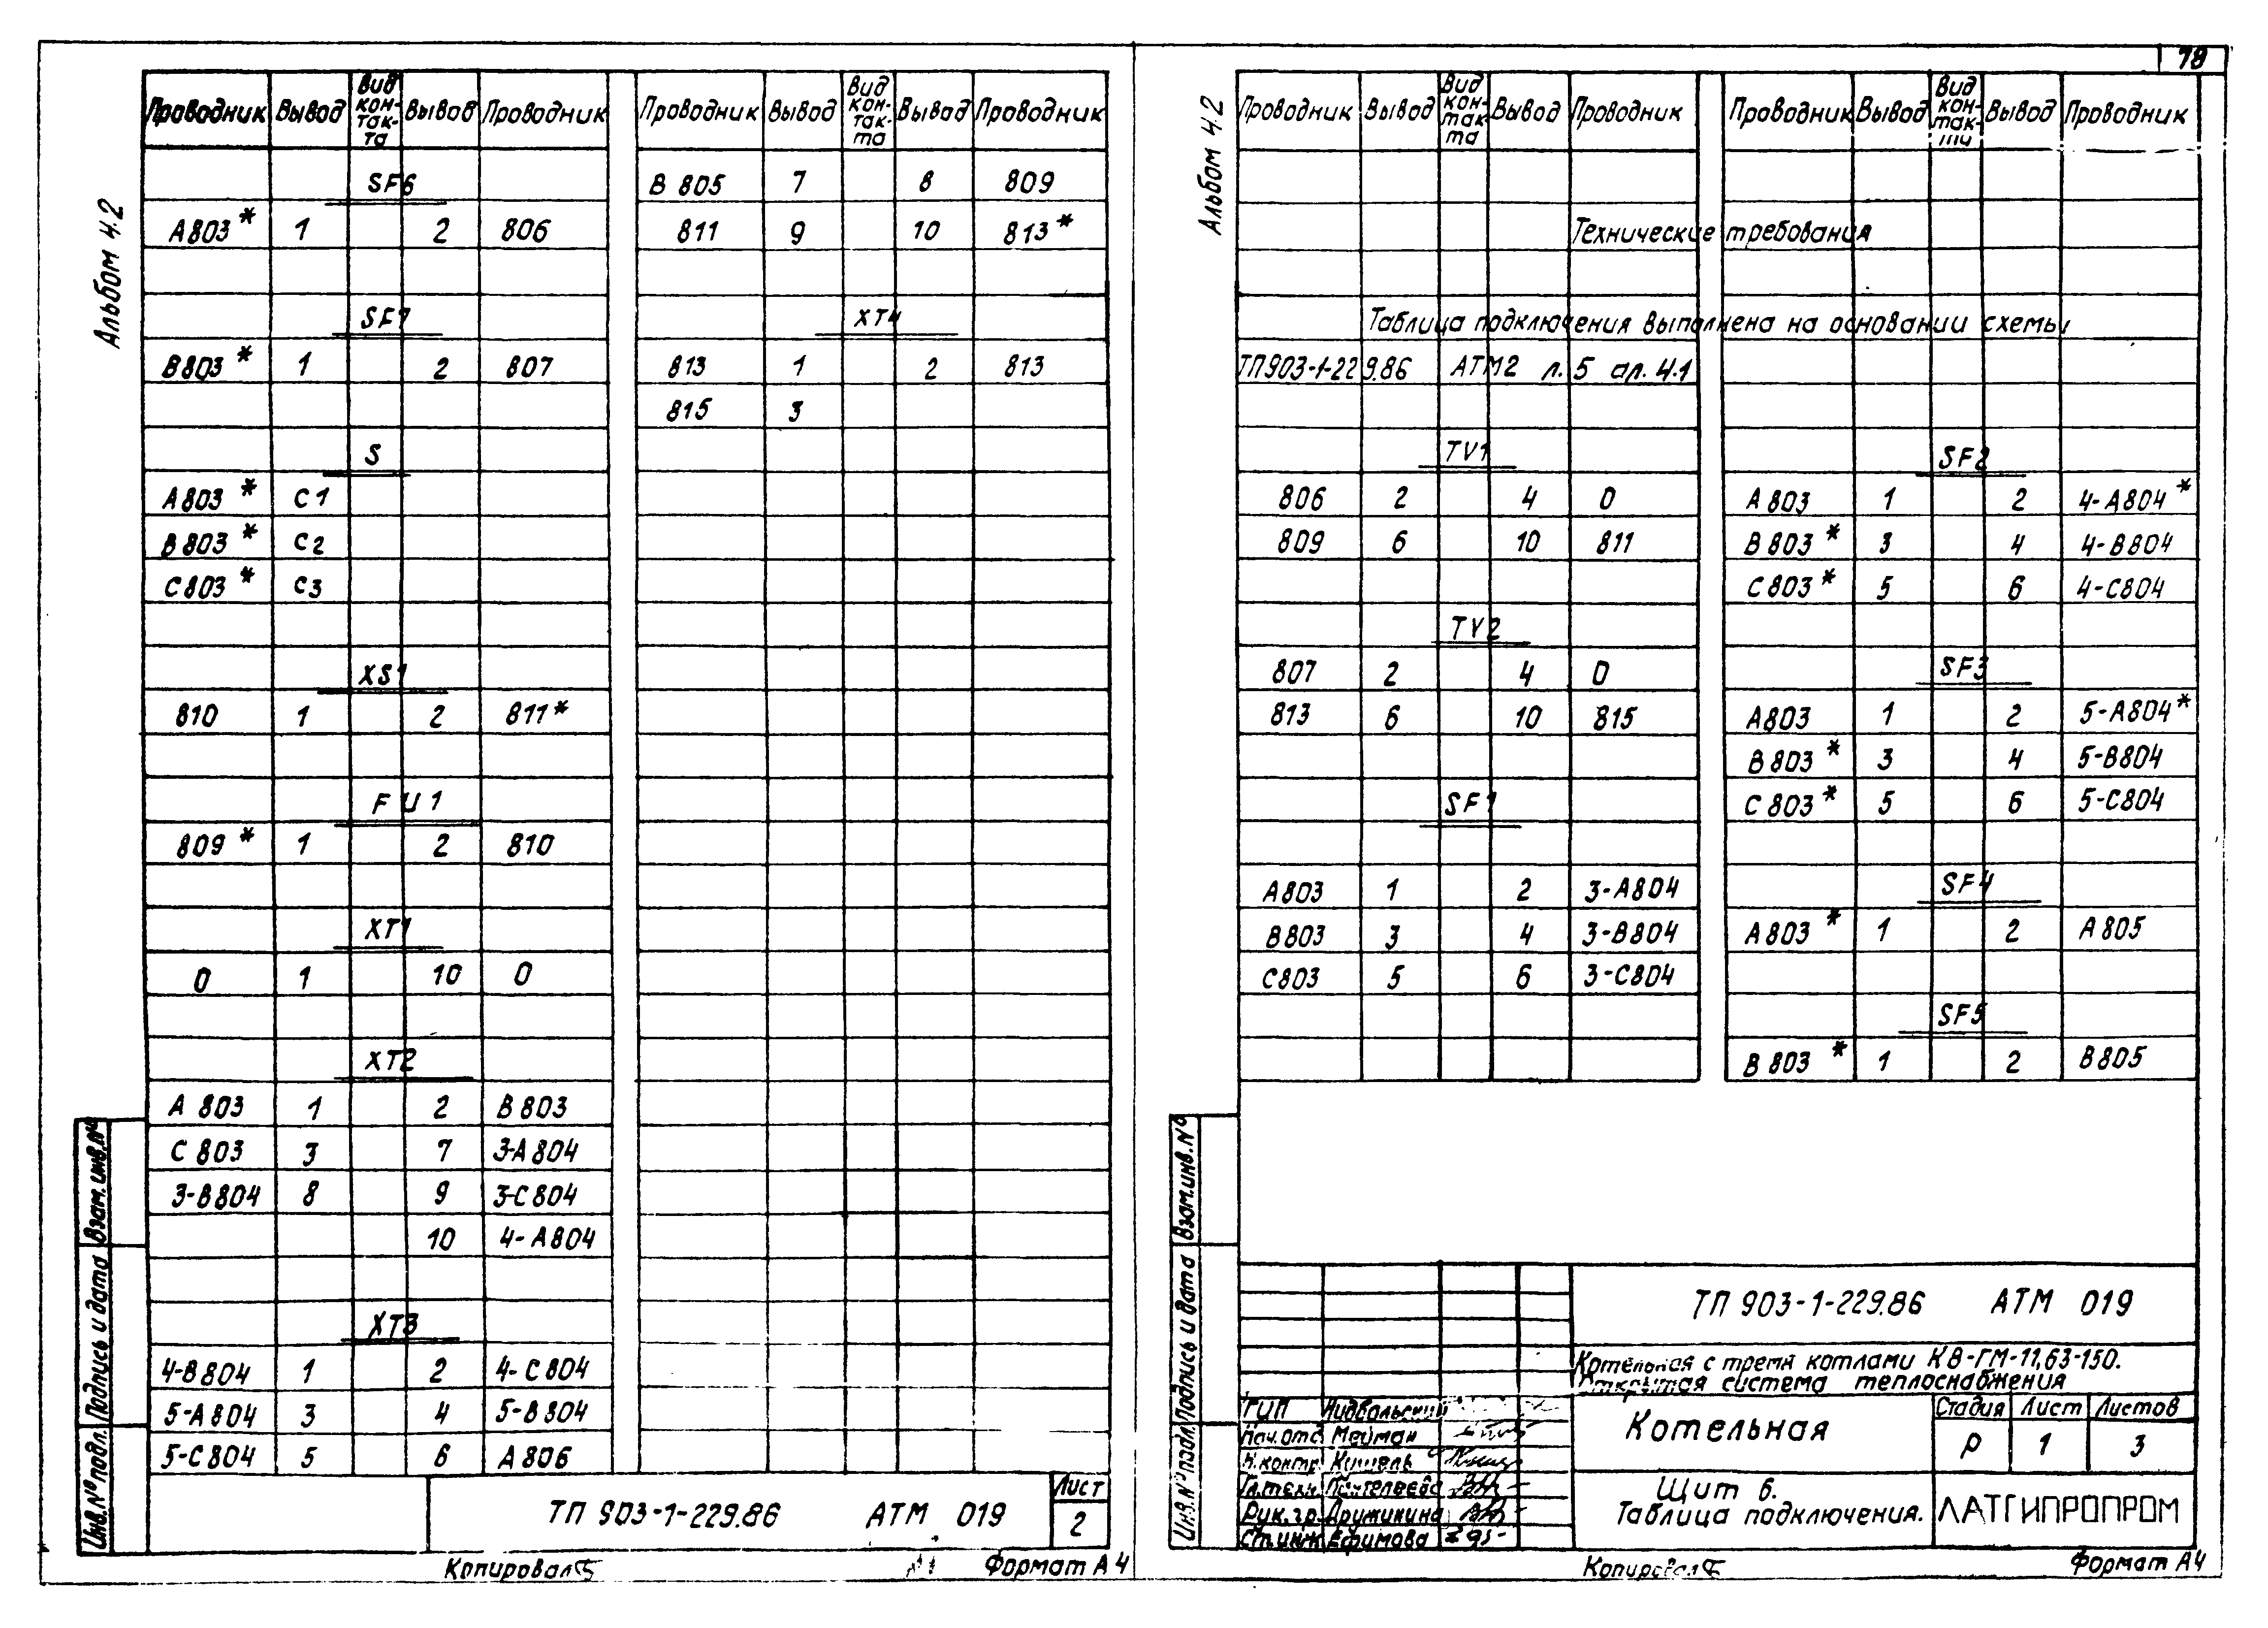 78
Альбом 4.2
Проводник Вывод Вид контакта Вывод Проводник
SF6
А803* 1 2 806
SF7
В803* 1 2 807
S
А803* С1
В803* С2
С803* С3
XS1
810 1 2 811*
FU1
809* 1 2 810
XT1
0 1 10 0
XT2
А803 1 2 В803
С803 3 7 3-А804
3-В804 8 9 3-С804
10 4-А804
XT3
4-В804 1 2 4-С804
5-А804 3 4 5-В804
5-С804 5 6 А806
Проводник Вывод Вид контакта Вывод Проводник
В805 7 8 809
811 9 10 813*
XT4
813 1 2 813
815 3
Взам.инв.№
Подпись и дата
Инв.№ подл.
ТП 903-1-229.86 АТМ 019
Лист
2
Копировал
Формат А4
Альбом 4.2
Проводник Вывод Вид контакта Вывод Проводник
Проводник Вывод Вид контакта Вывод Проводник
Технические требования
Таблица подключения выполнена на основании схемы
ТП903-1-229.86 АТМ2 л.5 ал.4.1
TV1
806 2 4 0
809 6 10 811
TV2
807 2 4 0
813 6 10 815
SF1
А803 1 2 3-А804
В803 3 4 3-В804
С803 5 6 3-С804
SF2
А803 1 2 4-А804*
В803* 3 4 4-В804
С803* 5 6 4-С804
SF3
А803 1 2 5-А804*
В803* 3 4 5-В804
С803* 5 6 5-С804
SF4
А803* 1 2 А805
SF5
В803* 1 2 В805
Взам.инв.№
Подпись и дата
Инв.№ подл.
ТП 903-1-229.86 АТМ 019
Котельная с тремя котлами КВ-ГМ-11,63-150.
Открытая система теплоснабжения
ГИП
Нач.отд. Мейман
Н.контр.
Гл.техн. Пантелеева
Рук.гр. Дружинина
Ст.инж. Ефимова
Котельная
Стадия Лист Листов
Р 1 3
Щит 6.
Таблица подключения.
ЛАТГИПРОПРОМ
Копировал
Формат А4